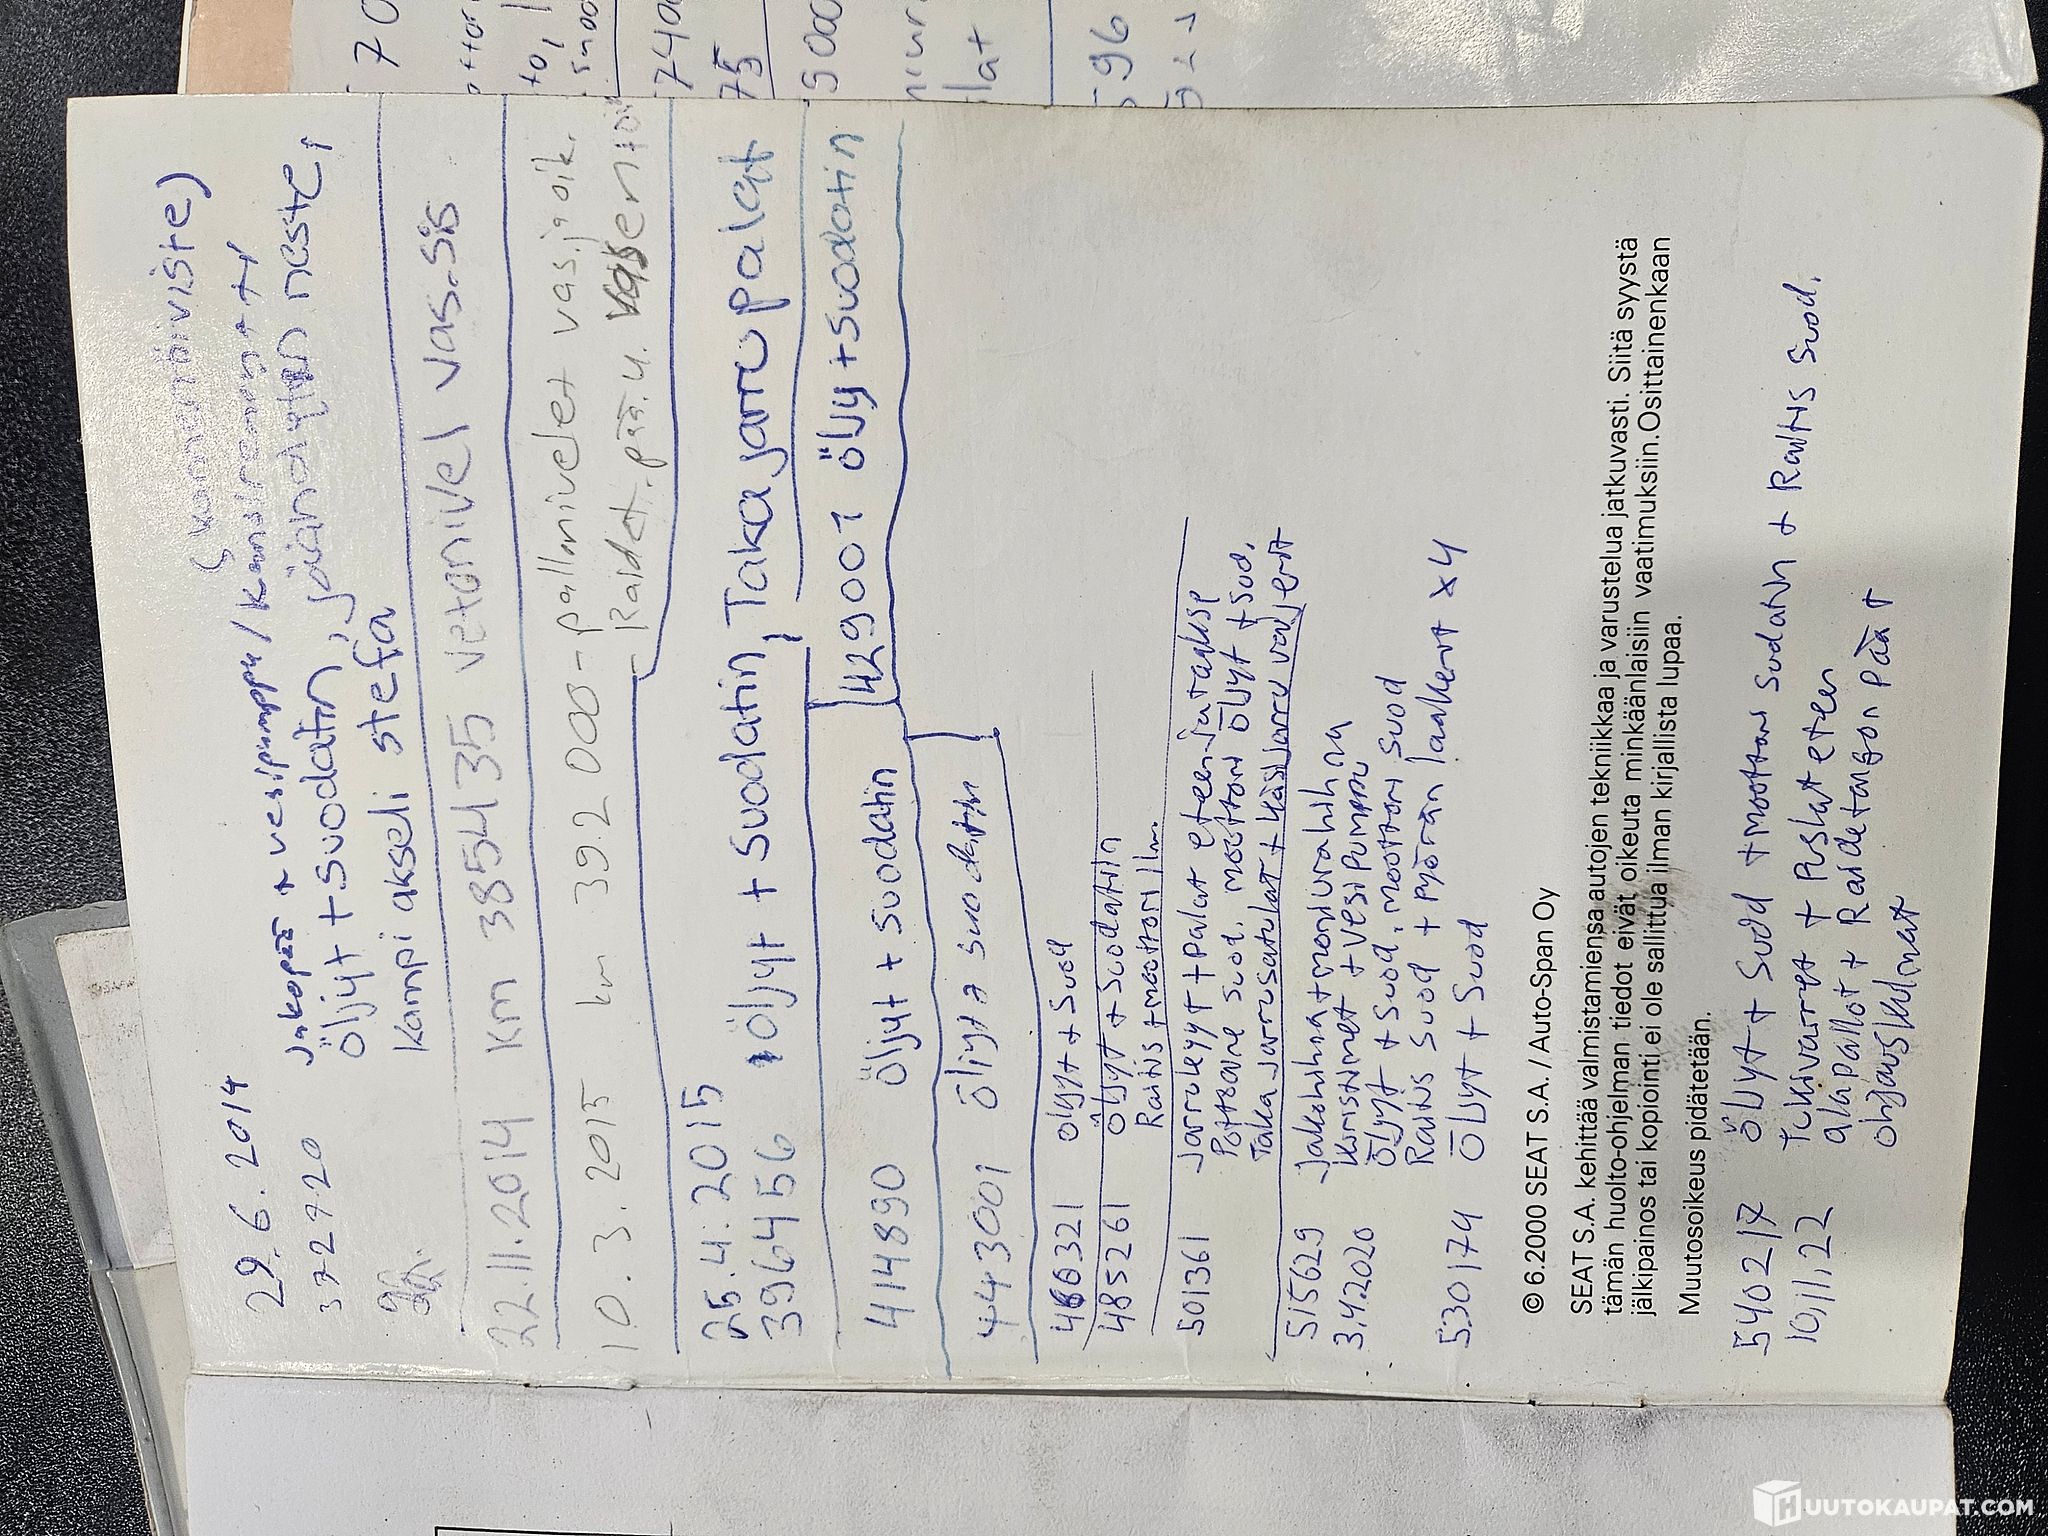 (kannentiiviste)
29.6.2014 Jakopää + vesipumppu/
372720 Öljyt + suodatin, jäähdytin neste,
Kampi akseli stefa
22.11.2014 km 385435 vetonivel vas.sis
10.3.2015 km 392000 - pallonivelet vas.ja oik.
- Raidet.pää.u. vasen
25.4.2015
396456 Öljyt + Suodatin, Taka jarrupalat
414890 Öljyt + suodatin
429001 Öljy+suodatin
443001 Öljyt
466321 Öljyt + Suod
485261 Öljyt + Suodatiin
Raitis + moottori ilm.
501361 Jarrulevyt + palat eteen ja taakse
suod. moottori Öljyt + Suod.
Taka jarrusatulat + käsijarru vaijerit
515629 Jakohihna + moniurahihna
3.4.2020 Kiristimet + Vesi Pumppu
Öljyt + Suod, moottori suod
Raitis Suod + Pyörän laakerit x4
530174 Öljyt + Suod
© 6.2000 SEAT S.A. / Auto-Span Oy
SEAT S.A. kehittää valmistamiensa autojen tekniikkaa ja varustelua jatkuvasti. Siitä syystä
tämän huolto-ohjelman tiedot eivät oikeuta minkäänlaisiin vaatimuksiin.Osittainenkaan
jälkipainos tai kopiointi ei ole sallittua ilman kirjallista lupaa.
Muutosoikeus pidätetään.
540217 Öljyt + Suod + moottori Suodatin + Raitis Suod.
10.11.22 Tukivarret + Puslat eteen
alapallot + Raidetangon päät
HUUTOKAUPAT.COM